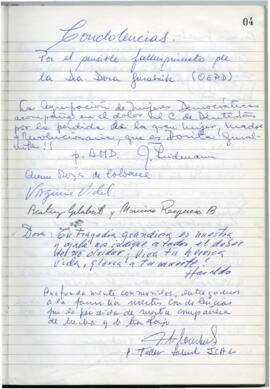 04
Condolencias.
Por el sensible fallecimiento de
la Sra. Dora Guralnik (OEPD)
La Agrupación de Mujeres Democráticas
acompaña en el dolor al C. de Dentistas
por la pérdida de la gran mujer, madre
y Revolucionaria, que es Dorita Gural-
nik!!
p. AMD.
Eliana
de
Virginia Vidal
Beatriz Gilabert y Mariano Requena B
Dora: Tu tragedia grandiosa es nuestra
y ojalá nos indique a todos el deber
del no olvidar! Viva tu heroica
vida, Gloria! a tu muerte!
Haroldo
Profundamente conmovidos, entregamos
a la familia nuestras condolencias
por la pérdida de nuestra compañera
de lucha y de trabajo
p. Taller Salud ICAL